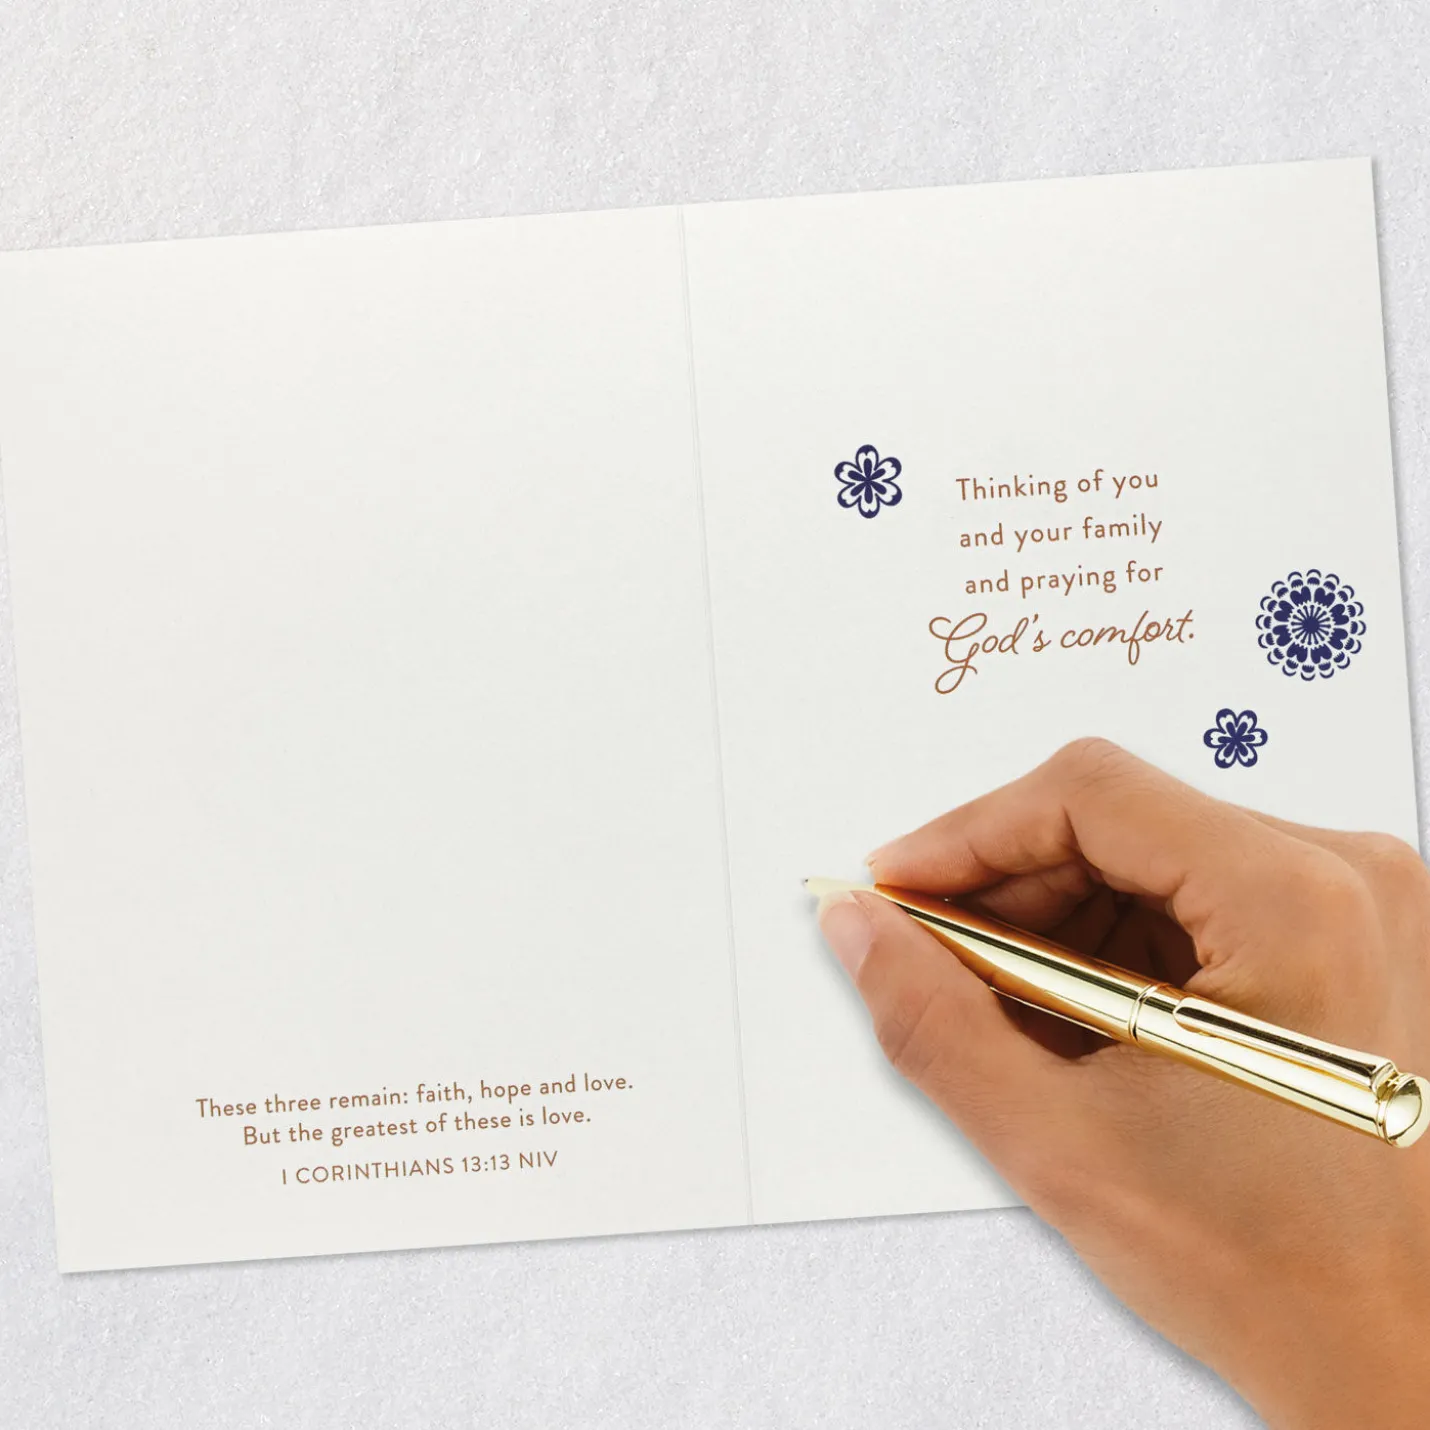 These three remain: faith, hope and love.
But the greatest of these is love.
I CORINTHIANS 13:13 NIV
Thinking of you
and your family
and praying for
God's comfort.